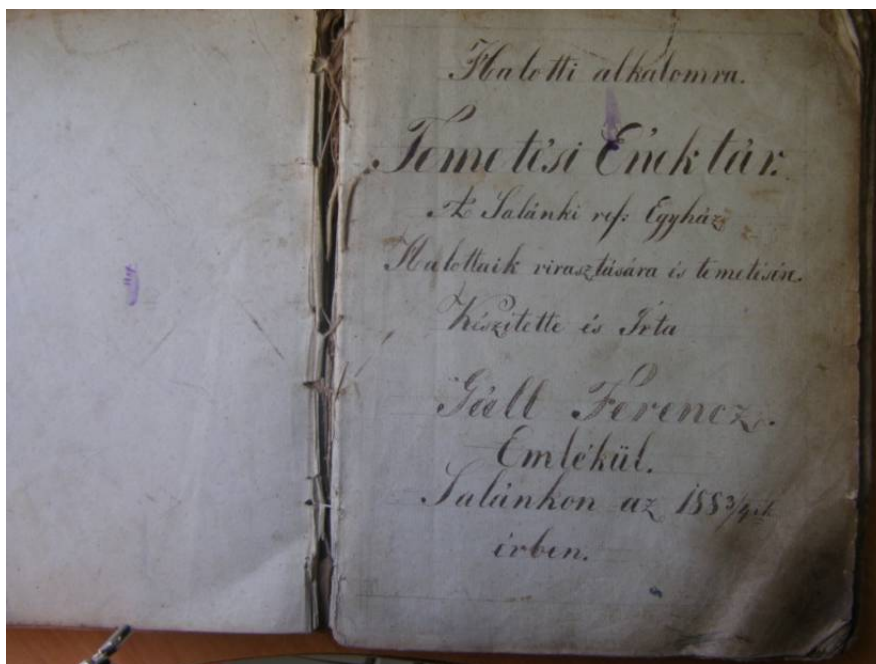 Halotti alkalomra.
Temetési Énektár.
A' Salánki ref: Egyház
Halottaik virasztására és temetésén.
Készitette és Írta
Gáll Ferencz.
Emlékül.
Salánkon az 1883/4ik
évben.